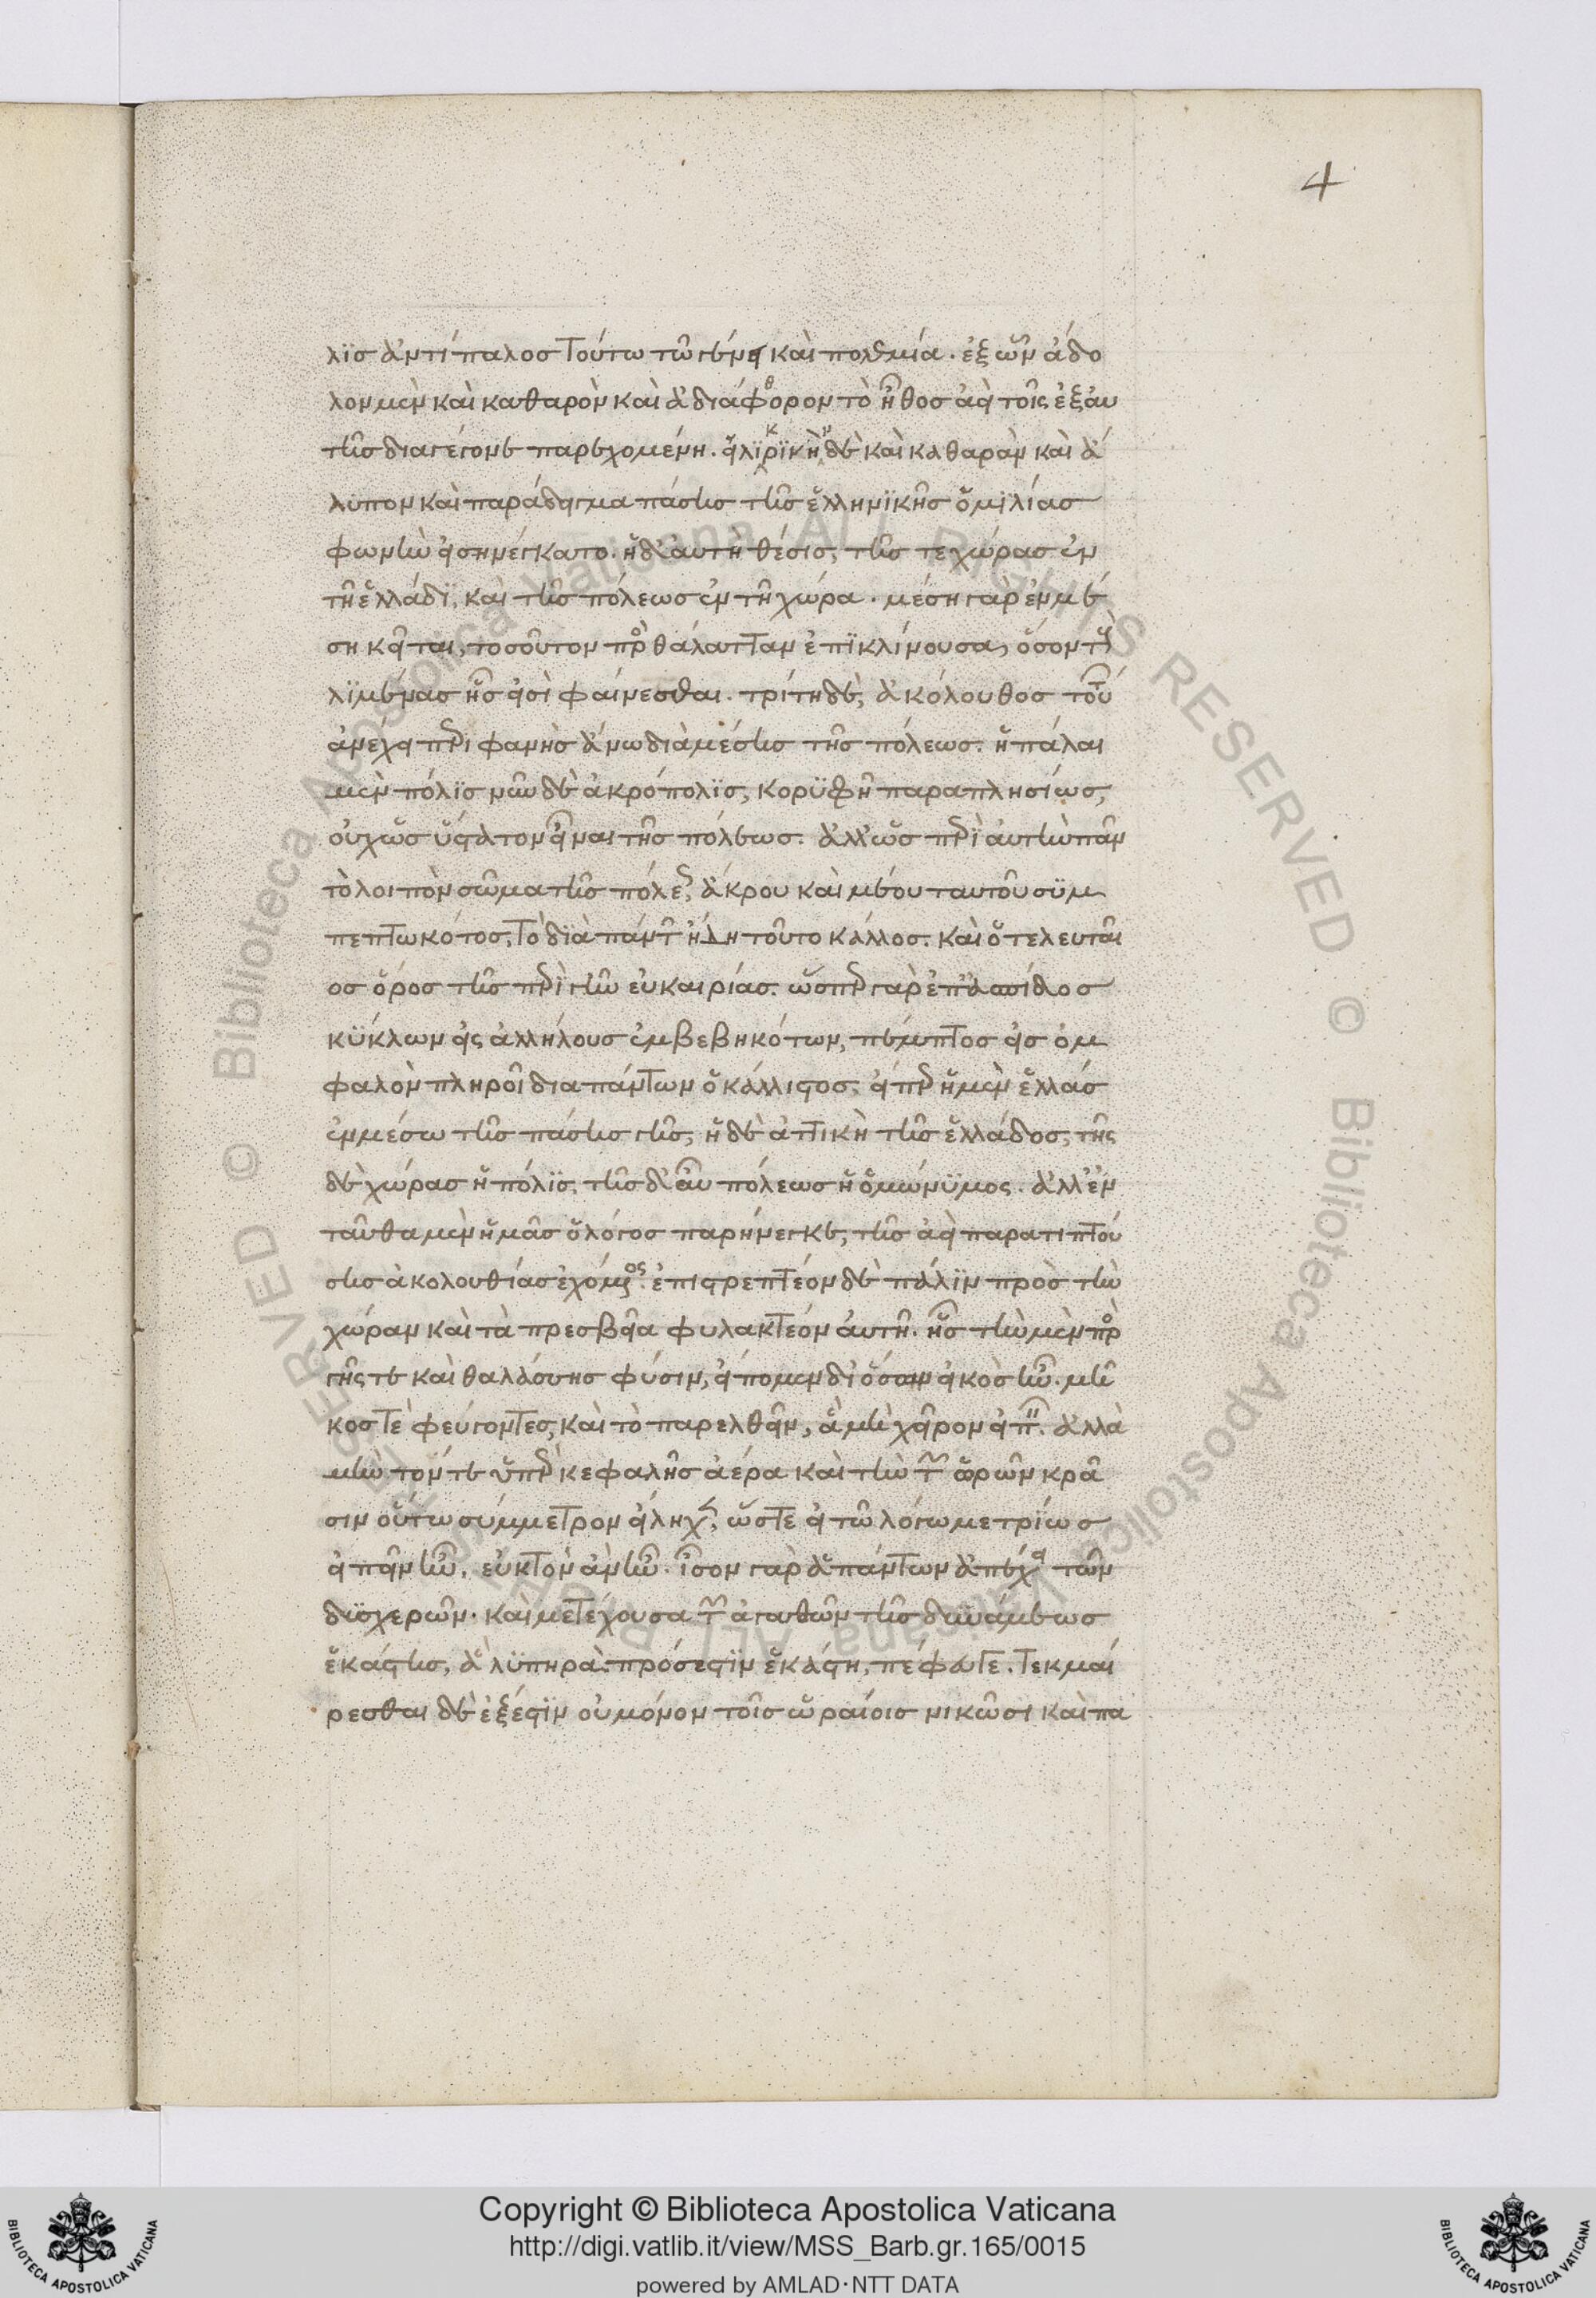 4
λϊσ ἀντίπαλοσ τούτω τῶ γένει καὶ πολεμία. ἐξ ὧν ἄδο
λον μὲν καὶ καθαρὸν καὶ ἀδιάφθορον τὸ ἦθοσ ἀεὶ τοῖς ἐξ αυ
τῆσ διαγέγονε παρεχομένη. εἰλϊκρϊκὴν δὲ καὶ καθαρὰν καὶ ἄ
λυπον καὶ παράδειγμα πάσησ τῆσ ἑλληνϊκῆσ ὁμϊλίασ
φωνὴν εἰσηνέγκατο. ἡ δ' ἀυτὴ θέσισ, τῆσ τε χώρασ ἐν
τῆ ἑλλάδϊ, καὶ τῆσ πόλεωσ ἐν τῆ χώρα. μέση γὰρ ἐν μέ
ση κεῖται, τοσοῦτον πρὸ θάλατταν ἐπϊκλίνουσα, ὅσον τοῦ
λϊμένασ ἧσ εἰσὶ φαίνεσθαι. τρίτη δὲ, ἀκόλουθοσ τούτ
ἀνέχει περιφανὴσ ἄνω διὰ μέσησ τῆσ πόλεωσ. ἡ πάλαι
μὲν πόλϊσ νῦν δὲ ἀκρόπολϊσ, κορϋφῆ παραπλησίωσ,
οὐχ ὡσ ὕστατον εἶναι τῆσ πόλεωσ. ἀλλ' ὡσ περϊ ἀυτὴν πᾶν
τὸ λοιπὸν σῶμα τῆσ πόλε, ἄκρου καὶ μέσου ταυτοῦ σϋμ
πεπτωκότοσ, τὸ δϊὰ πάντ ἤδη τοῦτο κάλλοσ. καὶ ὁ τελευταῖ
οσ ὅροσ τῆσ περϊ γῆν εὐκαιρίασ. ὥσπερ γὰρ ἐπ' ἀσπίδοσ
κϋκλων εἰς ἀλλήλουσ ἐμβεβηκότων, πέμπτοσ εἰσ ὀμ
φαλὸν πληροῖ δια πάντων ὁ κάλλιστοσ. εἴπερ ἡ μὲν ἑλλάσ
ἐν μέσω τῆσ πάσησ γῆσ, ἡ δὲ ἀττικὴ τῆσ ἑλλάδοσ, τῆς
δὲ χώρασ ἡ πόλϊσ, τῆσ δ' ἂυ πόλεωσ ἡ ὁμώνϋμος. ἀλλ' ἐν
ταῦθα μὲν ἡμᾶσ ὁ λόγοσ παρήνεγκε, τῆσ ἀεὶ παραπιπτού
σησ ἀκολουθίασ ἐχόμενος. ἐπιστρεπτέον δὲ πάλϊν προὸσ τὴν
χώραν καὶ τὰ πρεσβεῖα φυλακτέον ἀυτῆ. ἧσ τὴν μὲν πρὸ
γῆς τε καὶ θαλάσσησ φύσιν, εἴπομεν δι' ὅσων εἰκὸσ ἦν. μῆ
κοσ τὲ φεύγοντεσ, καὶ τὸ παρελθεῖν, ἃ μὴ χεῖρον εἰπ. ἀλλὰ
μὴν τόν τε ὑπὲρ κεφαλῆσ ἀέρα καὶ τὴν τ ὡρῶν κρᾶ
σιν οὕτω σύμμετρον εἴληχ, ὥστε εἰ τῶ λόγω μετρίωσ
εἰπεῖν ἦν, εὐκτὸν ἀν ἦν. ἴσον γὰρ ἁπάντων ἀπέχει τῶν
δϋσχερῶν. καὶ μετέχουσα τ ἀγαθῶν τῆσ δϋνάμεωσ
ἑκάστησ, ἃ λϋπηρὰ πρόσεστϊν ἑκάστη, πέφυγε. τεκμαί
ρεσθαι δὲ ἐξέστϊν οὐ μόνον τοῖσ ὡραίοισ νικῶσι καὶ πα
Copyright © Biblioteca Apostolica Vaticana
http://digi.vatlib.it/view/MSS_Barb.gr.165/0015
powered by AMLAD·NTT DATA